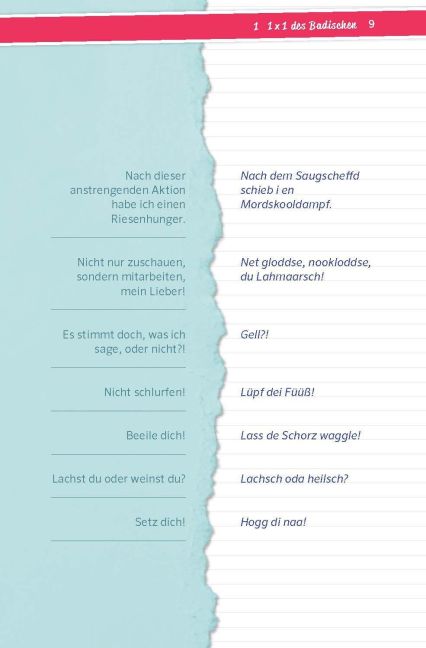 1 1x1 des Badischen 9
Nach dieser
anstrengenden Aktion
habe ich einen
Riesenhunger.
Nach dem Saugscheffd
schieb i en
Mordskooldampf.
Nicht nur zuschauen,
sondern mitarbeiten,
mein Lieber!
Net gloddse, nookloddse,
du Lahmaarsch!
Es stimmt doch, was ich
sage, oder nicht?!
Gell?!
Nicht schlurfen!
Lüpf dei Füüß!
Beeile dich!
Lass de Schorz waggle!
Lachst du oder weinst du?
Lachsch oda heilsch?
Setz dich!
Hogg di naa!